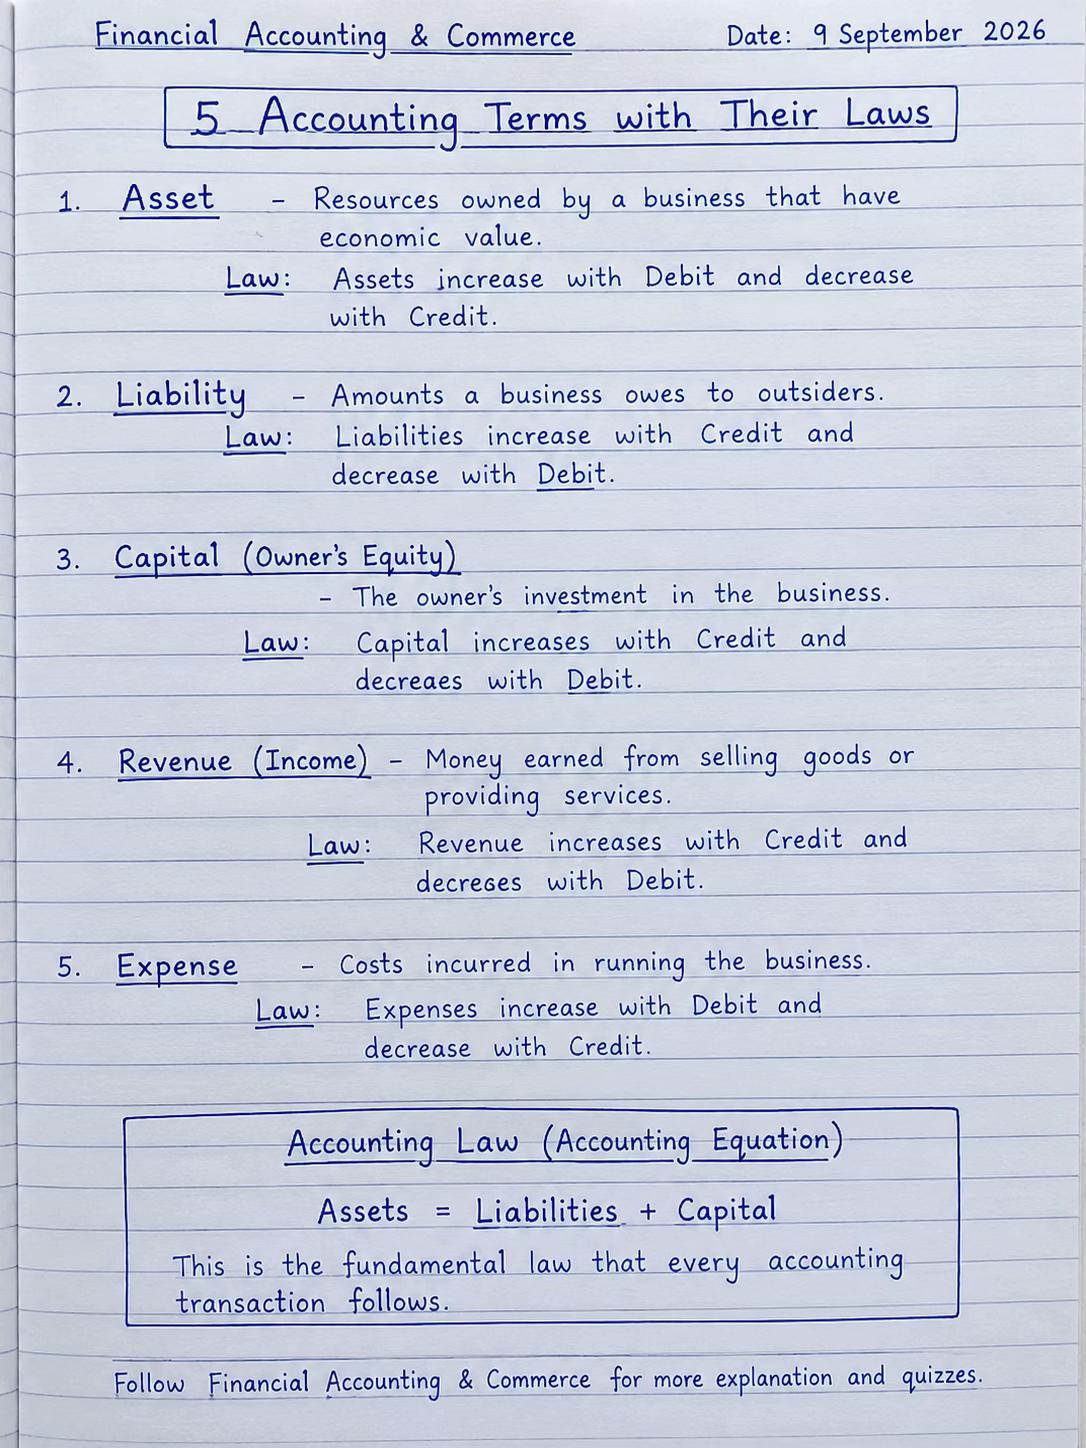 Financial Accounting & Commerce Date: 9 September 2026
5 Accounting Terms with Their Laws
1. Asset - Resources owned by a business that have
economic value.
Law: Assets increase with Debit and decrease
with Credit.
2. Liability - Amounts a business owes to outsiders.
Law: Liabilities increase with Credit and
decrease with Debit.
3. Capital (Owner's Equity)
- The owner's investment in the business.
Law: Capital increases with Credit and
decreaes with Debit.
4. Revenue (Income) - Money earned from selling goods or
providing services.
Law: Revenue increases with Credit and
decreses with Debit.
5. Expense - Costs incurred in running the business.
Law: Expenses increase with Debit and
decrease with Credit.
Accounting Law (Accounting Equation)
Assets = Liabilities + Capital
This is the fundamental law that every accounting
transaction follows.
Follow Financial Accounting & Commerce for more explanation and quizzes.